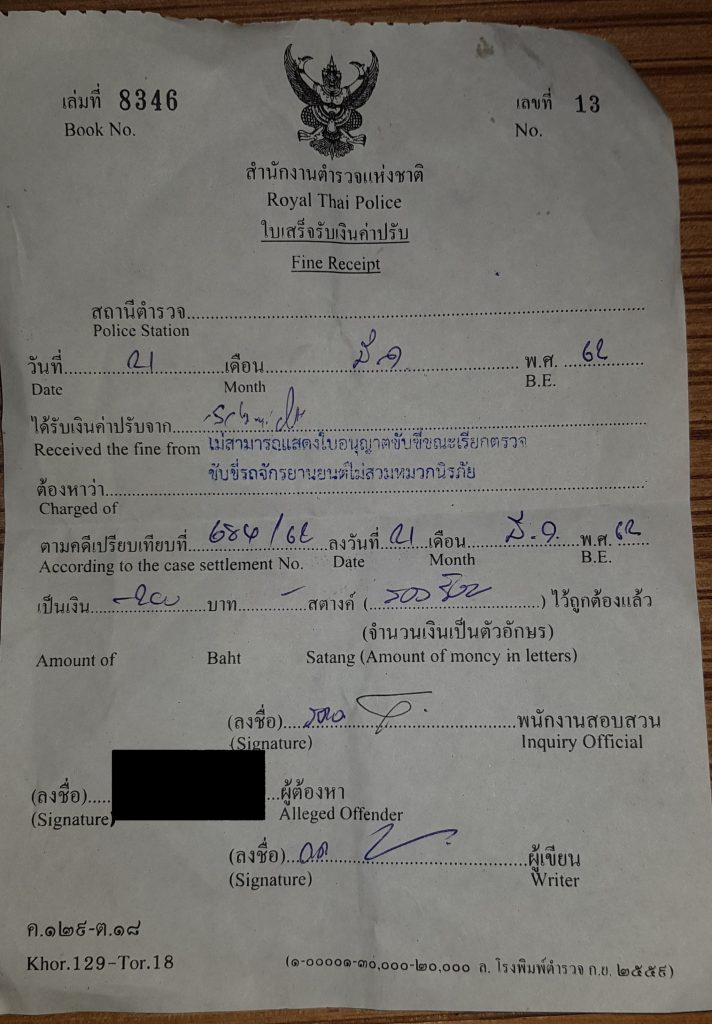 เล่มที่ 8346 เลขที่ 13
Book No. No.
สำนักงานตำรวจแห่งชาติ
Royal Thai Police
ใบเสร็จรับเงินค่าปรับ
Fine Receipt
สถานีตำรวจ
Police Station
วันที่ 21 เดือน มี.ค พ.ศ. 62
Date Month B.E.
ได้รับเงินค่าปรับจาก Schmidt
Received the fine from ไม่สามารถแสดงใบอนุญาตขับขี่ขณะเรียกตรวจ
ขับขี่รถจักรยานยนต์ไม่สวมหมวกนิรภัย
ต้องหาว่า
Charged of
ตามคดีเปรียบเทียบที่ 684/62 ลงวันที่ 21 เดือน มี.ค. พ.ศ. 62
According to the case settlement No. Date Month B.E.
เป็นเงิน บาท - สตางค์ ( ) ไว้ถูกต้องแล้ว
(จำนวนเงินเป็นตัวอักษร)
Amount of Baht Satang (Amount of moncy in letters)
(ลงชื่อ) พนักงานสอบสวน
(Signature) Inquiry Official
(ลงชื่อ) ผู้ต้องหา
(Signature) Alleged Offender
(ลงชื่อ) ผู้เขียน
(Signature) Writer
ค.๑๒๙-ต.๑๘
Khor.129-Tor.18 (๑-๐๐๐๐๑-๓๐,๐๐๐-๒๐,๐๐๐ ล. โรงพิมพ์ตำรวจ ก.ย. ๒๕๕๙)